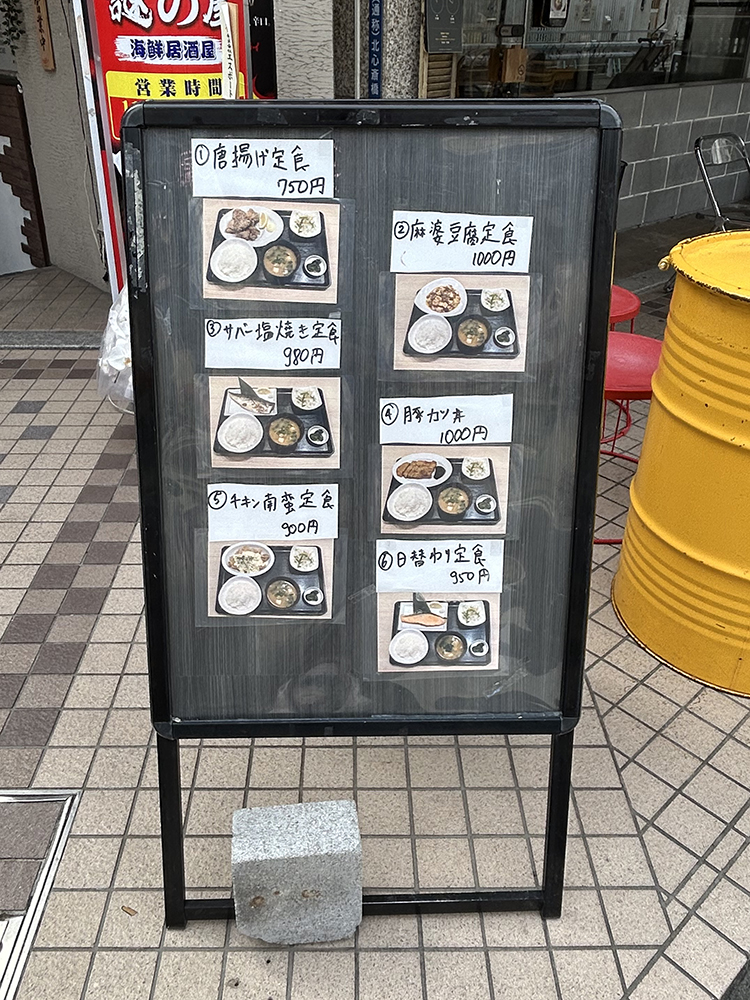 謎の屋
海鮮居酒屋
営業時間
通称)北心斎橋
①唐揚げ定食
750円
②麻婆豆腐定食
1000円
③サバー塩焼き定食
980円
④豚カツ丼
1000円
⑤チキン南蛮定食
900円
⑥日替わり定食
950円